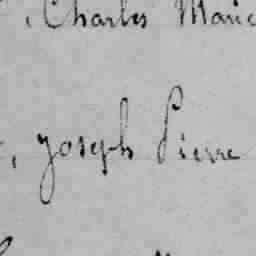 , Charles Marie
, Joseph Pierre